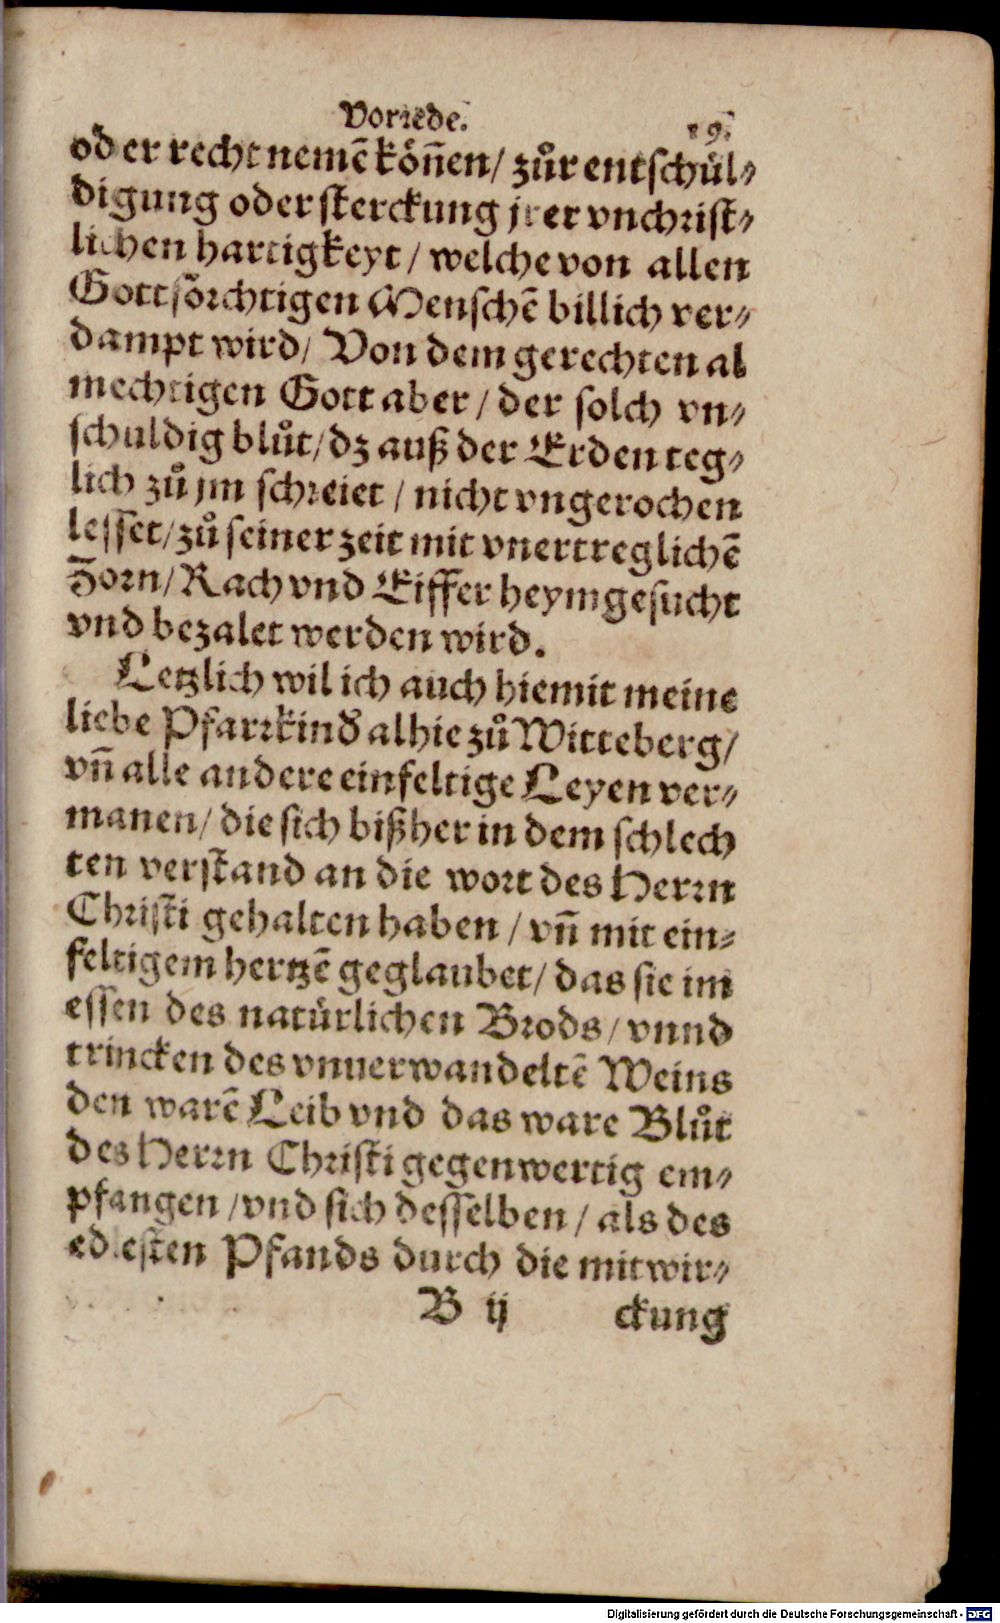 Vorrede. 19.
oder recht nemē köñen/ zůr entschül⸗
digung oder sterckung jrer vnchrist⸗
lichen hartigkeyt/ welche von allen
Gottsörchtigen Menschē billich ver⸗
dampt wird/ Von dem gerechten al
mechtigen Gott aber/ der solch vn⸗
schuldig blůt/ dz auß der Erden teg⸗
lich zů jm schreiet/ nicht vngerochen
lesset/ zů seiner zeit mit vnertreglichē
Zorn/ Rach vnd Eiffer heymgesucht
vnd bezalet werden wird.
Letzlich wil ich auch hiemit meine
liebe Pfarrkind alhie zů Witteberg/
vñ alle andere einfeltige Leyen ver⸗
manen/ die sich bißher in dem schlech
ten verstand an die wort des Herrn
Christi gehalten haben/ vñ mit ein⸗
feltigem hertzē geglaubet/ das sie im
essen des natürlichen Brods/ vnnd
trincken des vnuerwandeltē Weins
den warē Leib vnd das ware Blůt
des Herrn Christi gegenwertig em⸗
pfangen/ vnd sich desselben/ als des
edlesten Pfands durch die mitwir⸗
B ij ckung
Digitalisierung gefördert durch die Deutsche Forschungsgemeinschaft - DFG